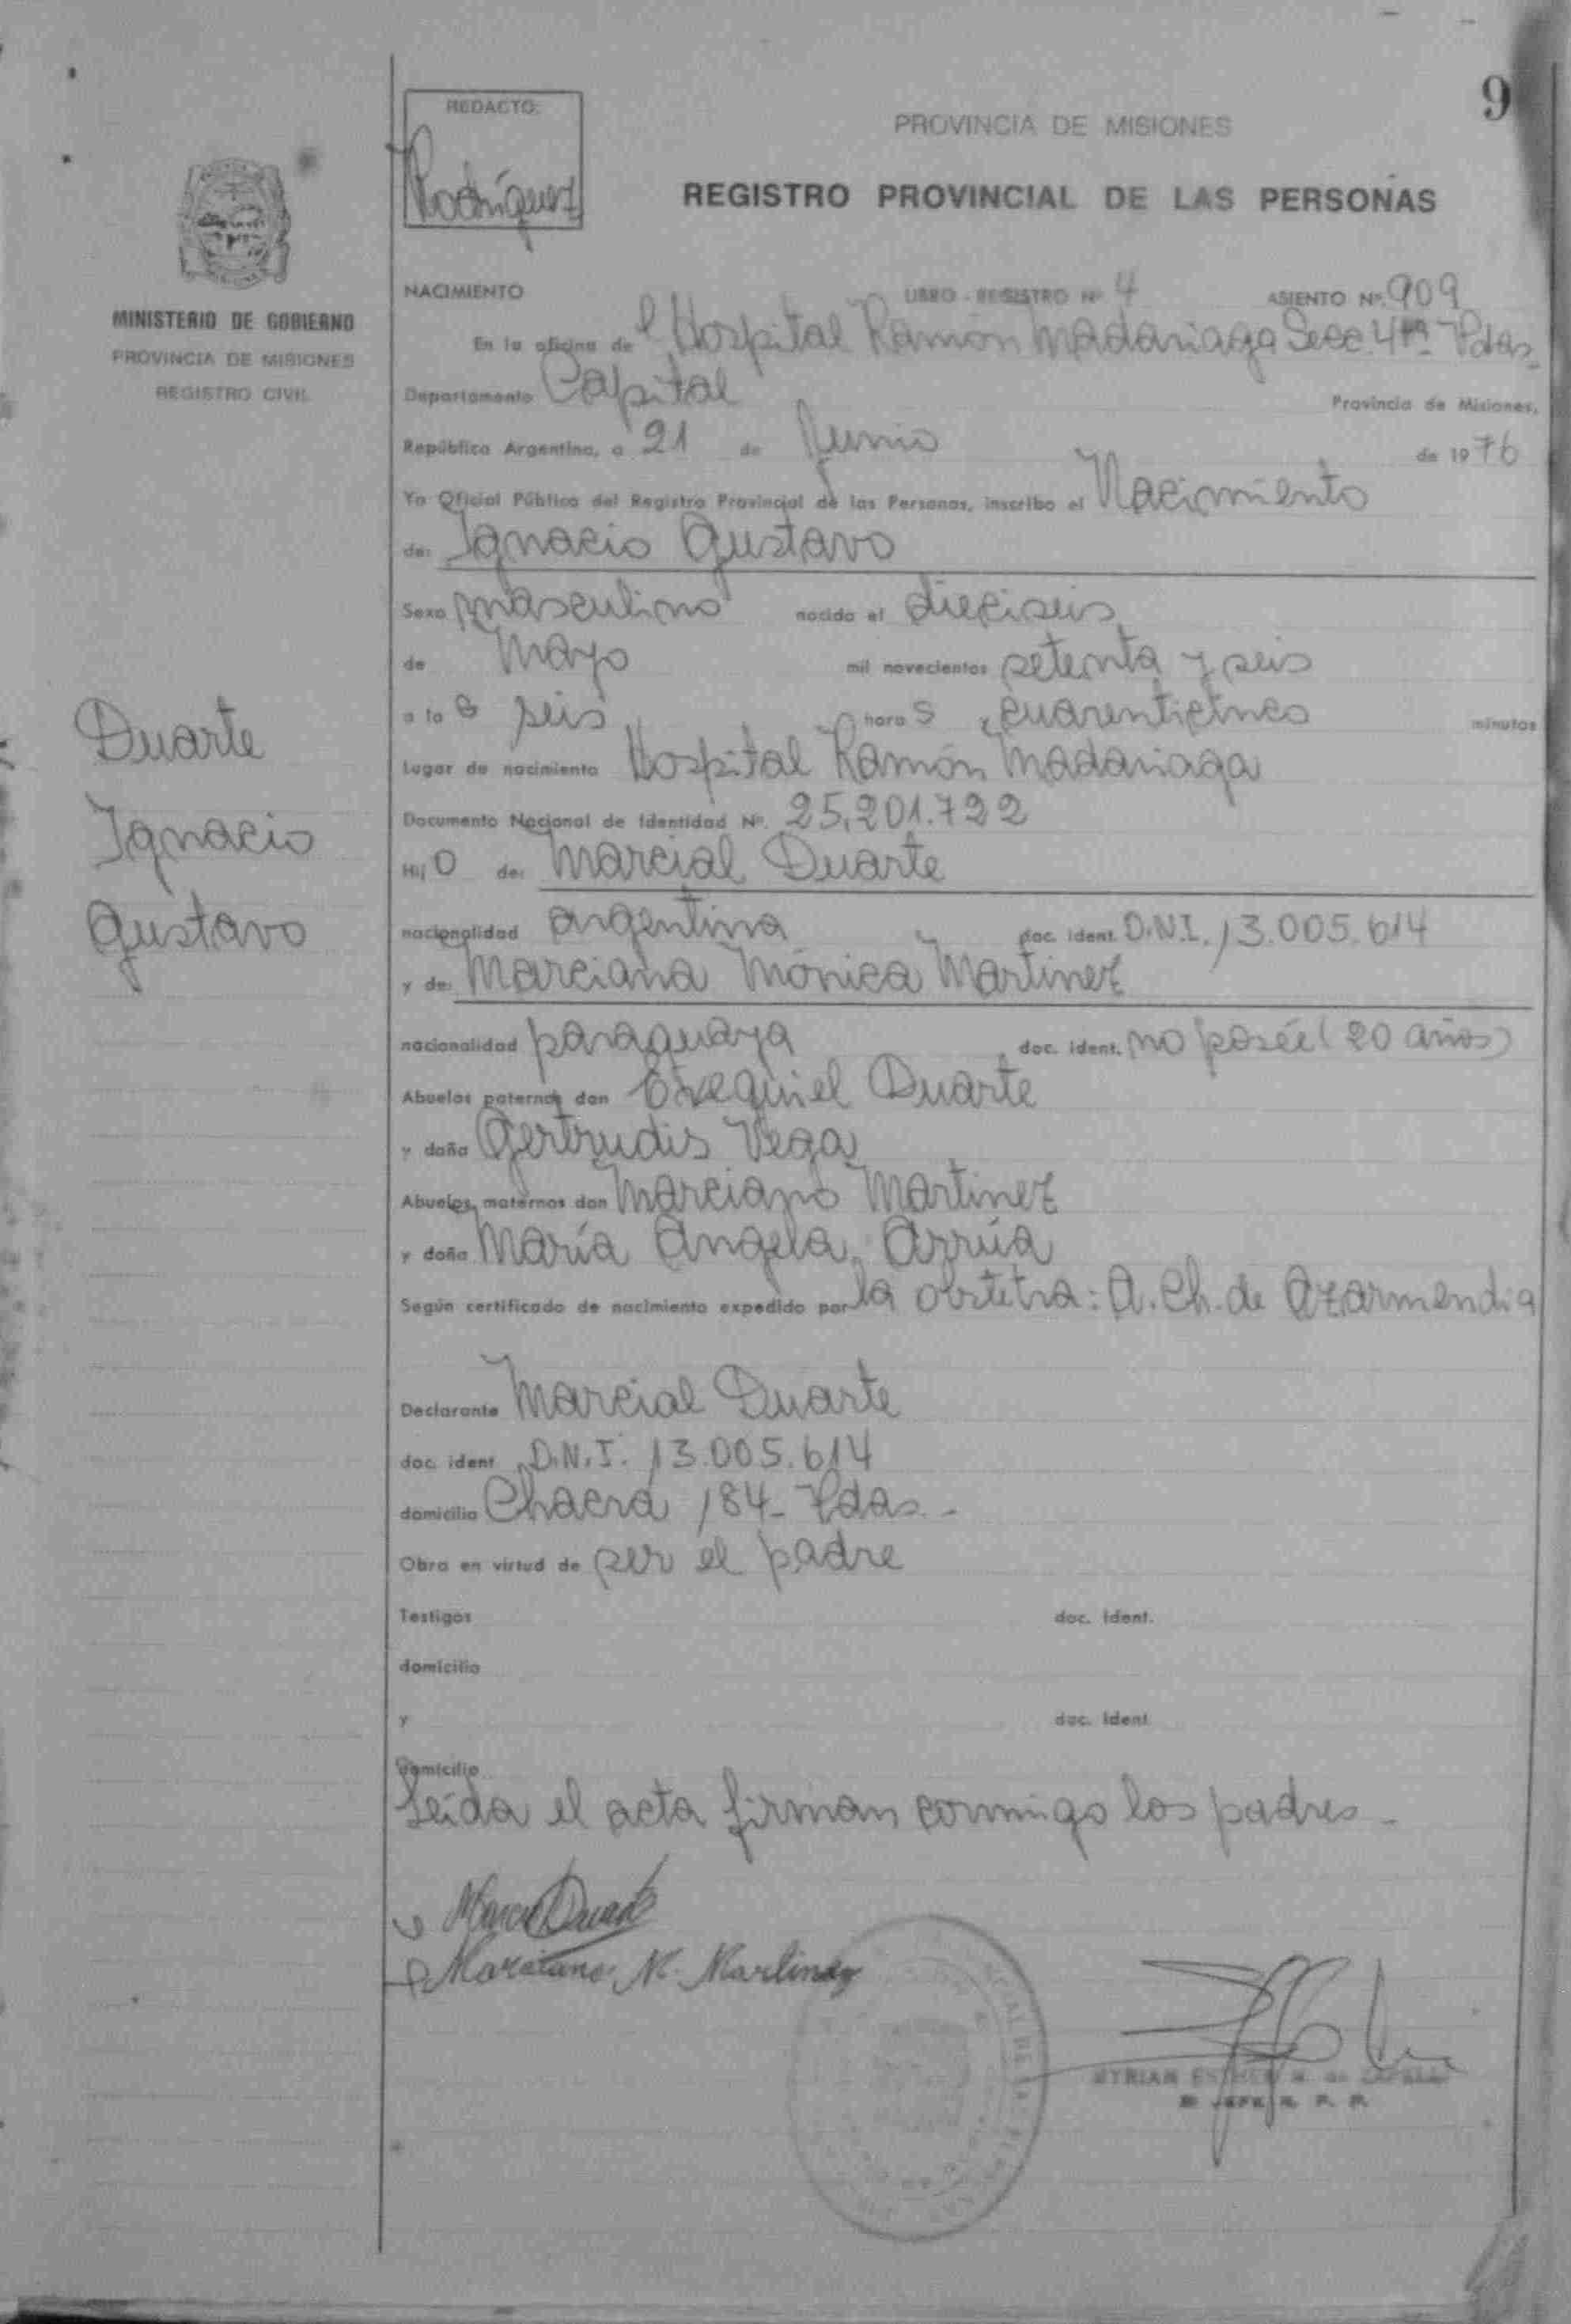 9
REDACTO:
Rodríguez
PROVINCIA DE MISIONES
REGISTRO PROVINCIAL DE LAS PERSONAS
MINISTERIO DE GOBIERNO
PROVINCIA DE MISIONES
REGISTRO CIVIL
Duarte
Ignacio
Gustavo
NACIMIENTO LIBRO - REGISTRO Nº 4 ASIENTO Nº. 909
En la oficina del Hospital Ramón Madariaga Secc 4ta Pdas.
Departamento Capital Provincia de Misiones,
República Argentina, a 21 de Junio de 1976
Yo Oficial Público del Registro Provincial de las Personas, inscribo el Nacimiento
de: Ignacio Gustavo
Sexo masculino nacido el dieciseis
de Mayo mil novecientos setenta y seis
a las seis horas cuarenticinco minutos
Lugar de nacimiento Hospital Ramón Madariaga
Documento Nacional de Identidad Nº. 25.201.722
Hijo de: Marcial Duarte
nacionalidad argentina doc. ident. D.N.I. 13.005.614
y de: Marciana Mónica Martinez
nacionalidad paraguaya doc. ident. no poseé (20 años)
Abuelos paternos don Exequiel Duarte
y doña Gertrudis Vega
Abuelos maternos don Marciano Martinez
y doña María Angela Arrúa
Según certificado de nacimiento expedido por la obstetra: A. Ch. de Azarmendia
Declarante Marcial Duarte
doc. ident. D.N.I. 13.005.614
domicilio Chacra 184 - Pdas. -
Obra en virtud de ser el padre
Testigos doc. ident.
domicilio
y doc. ident.
domicilio
Leída el acta firman conmigo los padres -
Marci Duarte
Marciana M. Martinez
MYRIAN ESTHER
JEFE R. P. P.